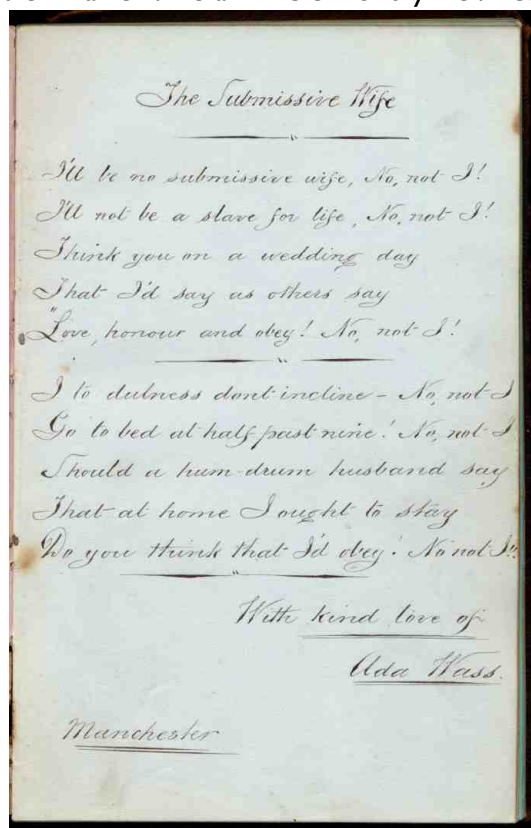 The Submissive Wife
I'll be no submissive wife, No, not I!
I'll not be a slave for life, No, not I!
Think you on a wedding day
That I'd say as others say
"Love, honour and obey! No, not I!
I to dulness dont incline - No, not I
Go to bed at half past nine! No, not I
Should a hum-drum husband say
That at home I ought to stay
Do you think that I'd obey! No not I!!
With kind love of
Ada Wass.
Manchester